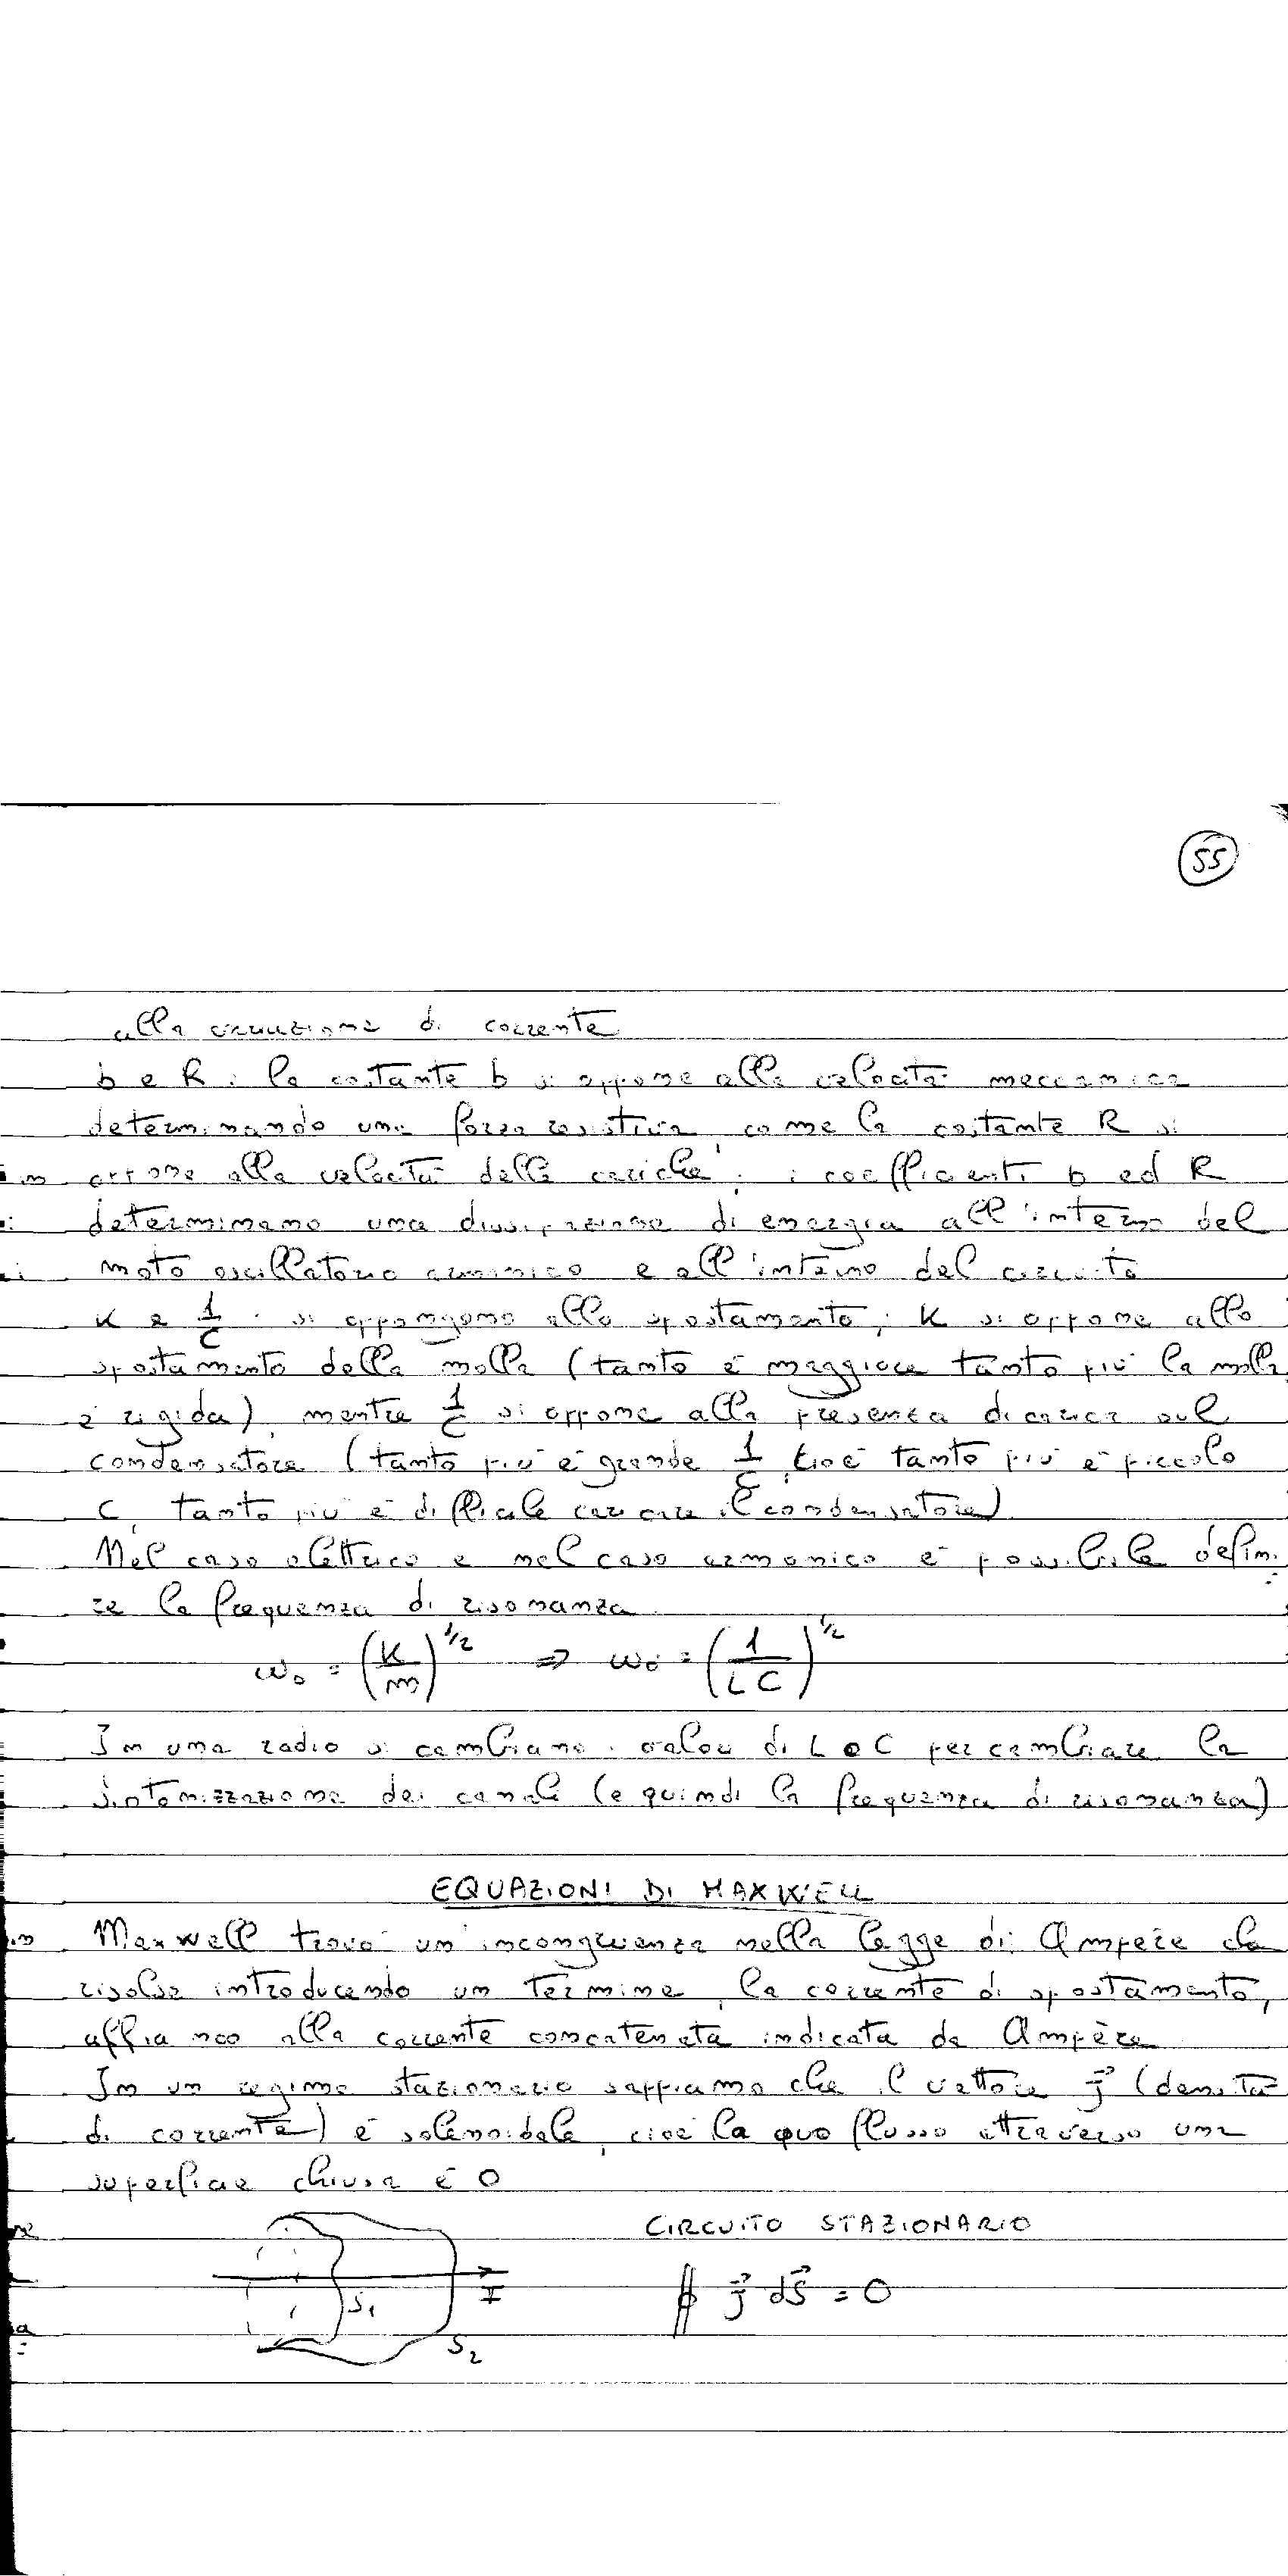 55
alla variazione di corrente
b e R : la costante b si oppone alla velocità meccanica
determinando una forza resistiva, come la costante R si
oppone alla velocità delle cariche ; i coefficienti b ed R
determinano una dissipazione di energia all'interno del
moto oscillatorio armonico e all'interno del circuito
K e 1/C : si oppongono allo spostamento ; K si oppone allo
spostamento della molla (tanto è maggiore tanto più la molla
è rigida), mentre 1/C si oppone alla presenza di carica sul
condensatore (tanto più è grande 1/C, cioè tanto più è piccolo
C, tanto più è difficile caricare il condensatore)
Nel caso elettrico e nel caso armonico è possibile defini
re la frequenza di risonanza
ω₀ = (K/m)^1/2 ⇒ ω₀ = (1/LC)^1/2
In una radio si cambiano i valori di L o C per cambiare la
sintonizzazione dei canali (e quindi la frequenza di risonanza)
EQUAZIONI DI MAXWELL
in Maxwell trovò un'incongruenza nella legge di Ampère che
risolse introducendo un termine, la corrente di spostamento,
affianco alla corrente concatenata indicata da Ampère
In un regime stazionario sappiamo che il vettore J⃗ (densità
di corrente) è solenoidale, cioè la suo flusso attraverso una
superficie chiusa è 0
CIRCUITO STAZIONARIO
S₁ I ∯ J⃗ dS⃗ = 0
S₂